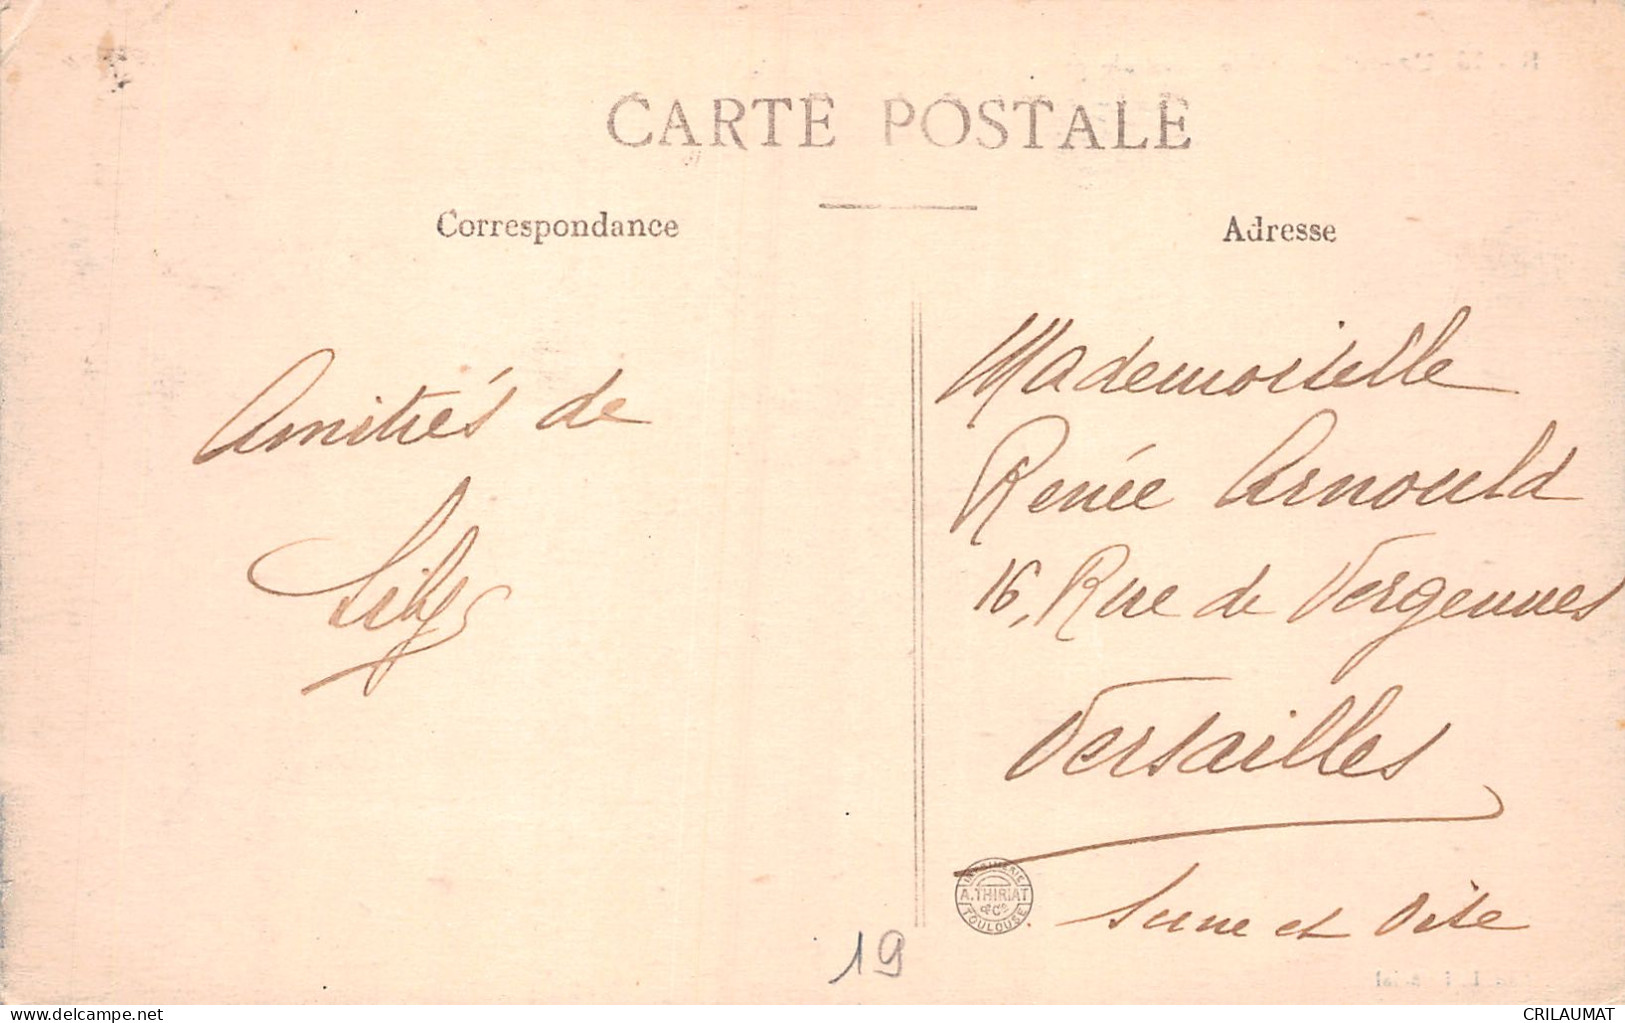 CARTE POSTALE
Correspondance
Adresse
Amitiés de
Lily
Mademoiselle
Renée Arnould
16, Rue de Vergennes
Versailles
Seine et Oise
IMPRIMERIE
A. THIRIAT
& Cie
TOULOUSE
19
CRILAUMAT